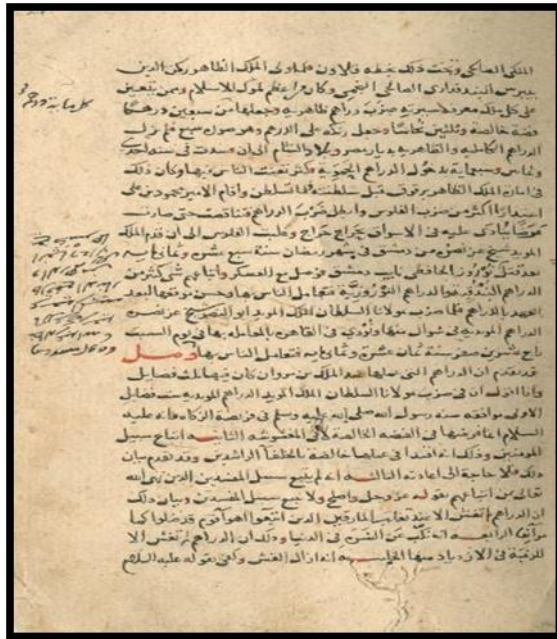 الملكى الصالحى وتحت ذلك بخطه قلاوون فلما ولى الملك الظاهر ركن الدين
بيبرس البندقدارى الصالحى النجمى وكان من اعظم ملوك الاسلام وممن يتعين
على كل ملك معرفة سيرته ضرب دراهم ظاهرية وجعلها من سبعين درهما
فضة خالصة وثلثين نحاسا وجعل رنكه على الدرهم وهو صورة سبع فلم تزل
الدراهم الكاملية والظاهرية بديار مصر وبلاد الشام الى ان فسدت فى سنة احدى
وثمانين وسبعماية بدخول الدراهم الحموية وكثر تعنت الناس فيها وكان ذلك
فى امارة الملك الظاهر برقوق قبل سلطنته فلما تسلطن واقام الامير محمود بن على
استدارا اكثر من ضرب الفلوس وابطل ضرب الدراهم فتناقصت حتى صارت
عرضا ينادى عليه فى الاسواق بحراج حراج وغلبت الفلوس الى ان قدم الملك
المويد شيخ عز نصره من دمشق فى شهر رمضان سنة سبع عشرة وثمانى ماية
بعد قتل نوروز الحافظى نايب دمشق فوصل مع العسكر واتباعهم شى كثير من
الدراهم البندقية والدراهم النوروزية فتعامل الناس بها وحسن موقعها لبعد
العهد بالدراهم فلما ضرب مولانا السلطان الملك المويد ابو النصر شيخ عز نصره
الدراهم المويدية فى شوال منها ونودى فى القاهرة بالمعاملة بها فى يوم السبت
رابع عشرين صفر سنة ثمان عشرة وثمانى ماية فتعامل الناس بها فصل
قد تقدم ان الدراهم التى عملها عبد الملك بن مروان كان فيها ثلث فضايل
وانا اقول ان فى ضرب مولانا السلطان الملك المويد الدراهم المويدية ست فضايل
الاولى موافقة سنة رسول الله صلى الله عليه وسلم فى فريضة الزكاة فانه عليه
السلام انما فرضها فى الفضة الخالصة لا فى المغشوشة الثانية اتباع سبيل
المومنين وذلك انه اقتدا فى عملها خالصة بالخلفا الراشدين وقد تقدم بيان
ذلك فلا حاجة الى اعادته الثالثة انه لم يتبع سبيل المفسدين الذين نهى الله
تعالى عن اتباعهم بقوله عز وجل واصلح ولا تتبع سبيل المفسدين وبيان ذلك
ان الدراهم لم تغش الا عند تغلب المارقين الذين اتبعوا اهوا قوم قد ضلوا كما
مر آنفا الرابعة انه نكب عن الشره فى الدنيا وذلك ان الدراهم لم تغش الا
للرغبة فى الازدياد منها الخامسة انه ازال الغش وكفى بقوله عليه السلام